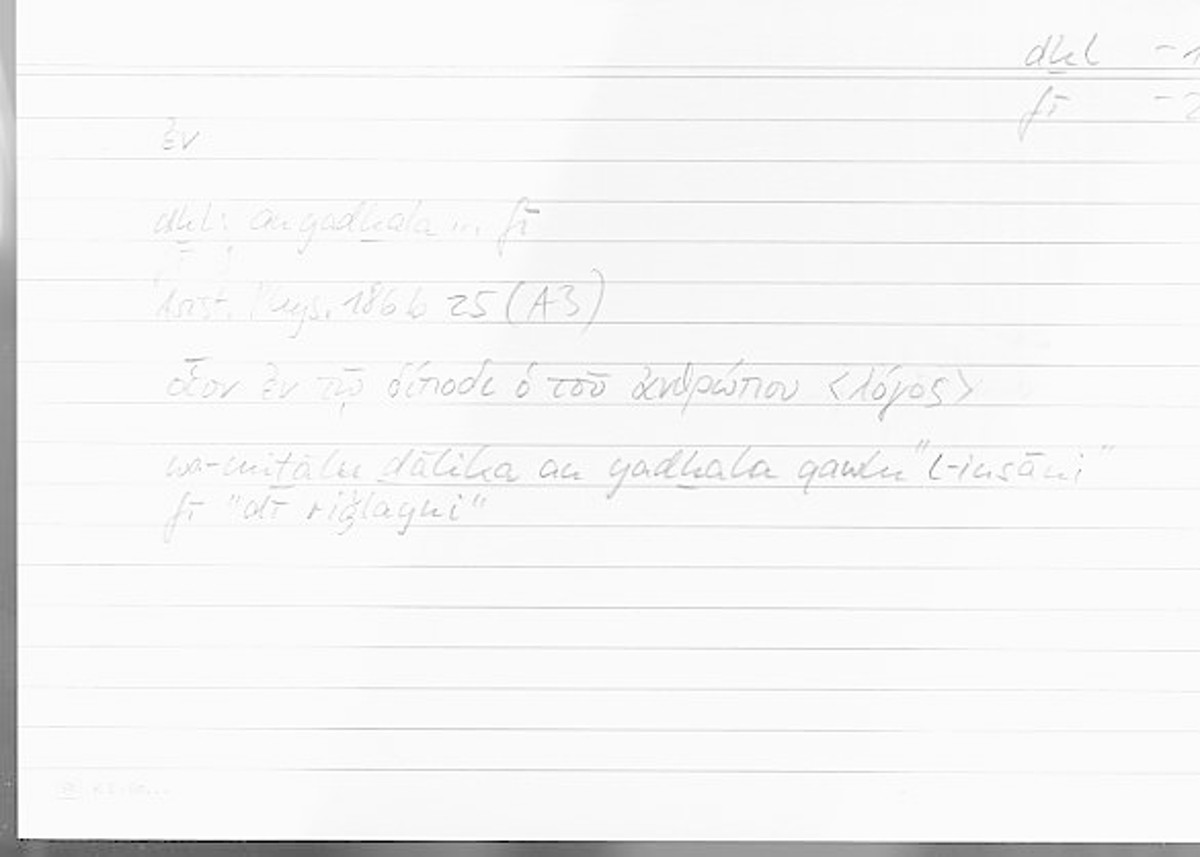 dḫl - 1
fī - 2
ἐν
dḫl: an yadḫala ... fī
Arist. Phys. 186 b 25 (A3)
οἷον ἐν τῷ δίποδι ὁ τοῦ ἀνθρώπου <λόγος>
wa-miṯālu ḏālika an yadḫala qawlu "l-insāni"
fī "ḏī riǧlayni"